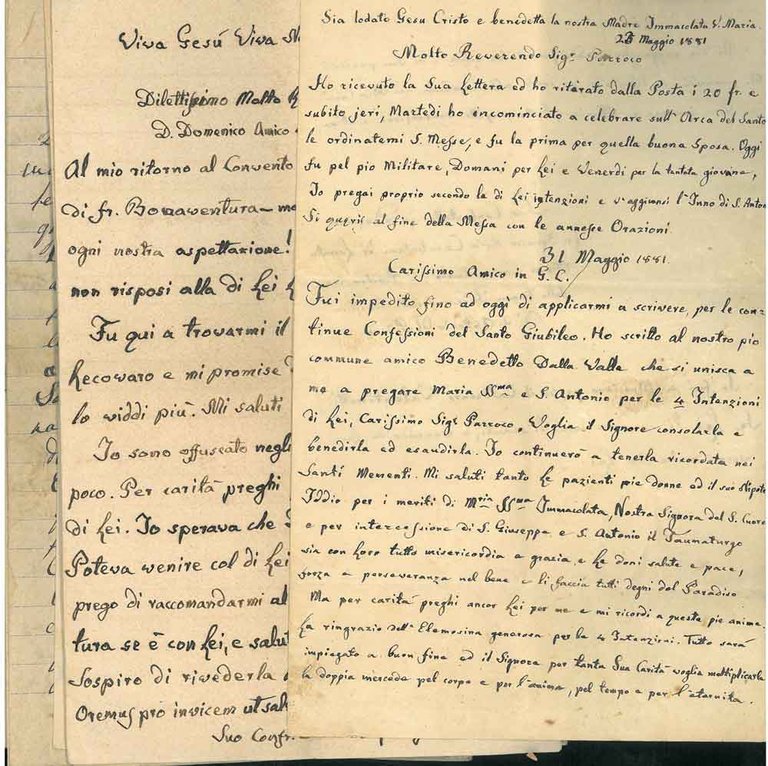 Viva Gesú Viva M
Dilettissimo Molto
D. Domenico Amico
Al mio ritorno al Convento
di fr. Bonaventura- mo
ogni nostra aspettazione!
non risposi alla di Lei
Fu qui a trovarmi il
Recovaro e mi promise
lo viddi più. Mi saluti
Io sono offuscato negli
poco. Per caritá preghi
di Lei. Io sperava che
Poteva venire col di Lei
prego di raccomandarmi al
tura se è con Lei, e salut
Sospiro di rivederla
Oremus pro invicem ut sal
Suo Confr.
Sia lodato Gesu Cristo e benedetta la nostra Madre Immacolata V. Maria.
Maggio 1881
Molto Reverendo Sigr Parroco
Ho ricevuto la Sua Lettera ed ho ritirato dalla Posta i 20 fr. e
subito jeri, Martedi ho incominciato a celebrare sull' Arca del Santo
le ordinatemi S. Messe, e fu la prima per quella buona Sposa. Oggi
fu pel pio Militare, Domani per Lei e Venerdi per la tantata giovane,
Io pregai proprio secondo le di Lei intenzioni e v'aggiunsi l'Inno di S. Anton
Si quæris al fine della Messa con le annesse Orazioni
31 Maggio 1881.
Carissimo Amico in G. C.
Fui impedito fino ad oggi di applicarmi a scrivere, per le con-
tinue Confessioni del Santo Giubileo. Ho scritto al nostro pio
commune amico Benedetto Dalla Valle che si unisca a
me a pregare Maria SSma e S. Antonio per le 4 Intenzioni
di Lei, Carissimo Sigr Parroco. Voglia il Signore consolarla e
benedirla ed esaudirla. Io continuerò a tenerla ricordata nei
Santi Mementi. Mi saluti tanto le pazienti pie donne ed il suo Nipote
Iddio per i meriti di Mria SSma Immacolata, Nostra Signora del S. Cuore
e per intercessione di S. Giuseppe e S. Antonio il Taumaturgo
sia con Loro tutto misericordia e grazia, e Le doni salute e pace,
forza e perseveranza nel bene e li faccia tutti degni del Paradiso
Ma per caritá preghi ancor Lei per me e mi ricordi a queste pie anime.
La ringrazio dell' Elemosina generosa per le 4 Intenzioni. Tutto sará
impiegato a buon fine ed il Signore per tanta Sua Caritá voglia moltiplicarle
la doppia mercede pel corpo e per l'anima, pel tempo e per l'eternita.